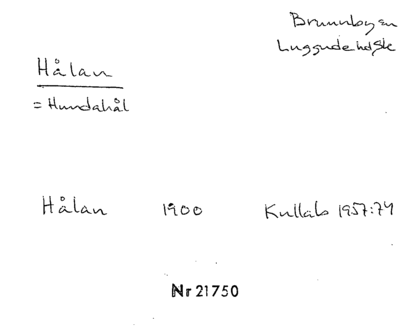 Brunnbyn sn
Luggude hd Sk
Hålan
= Hundahål
Hålan 1900 Kullab 1957:74
Nr 21750